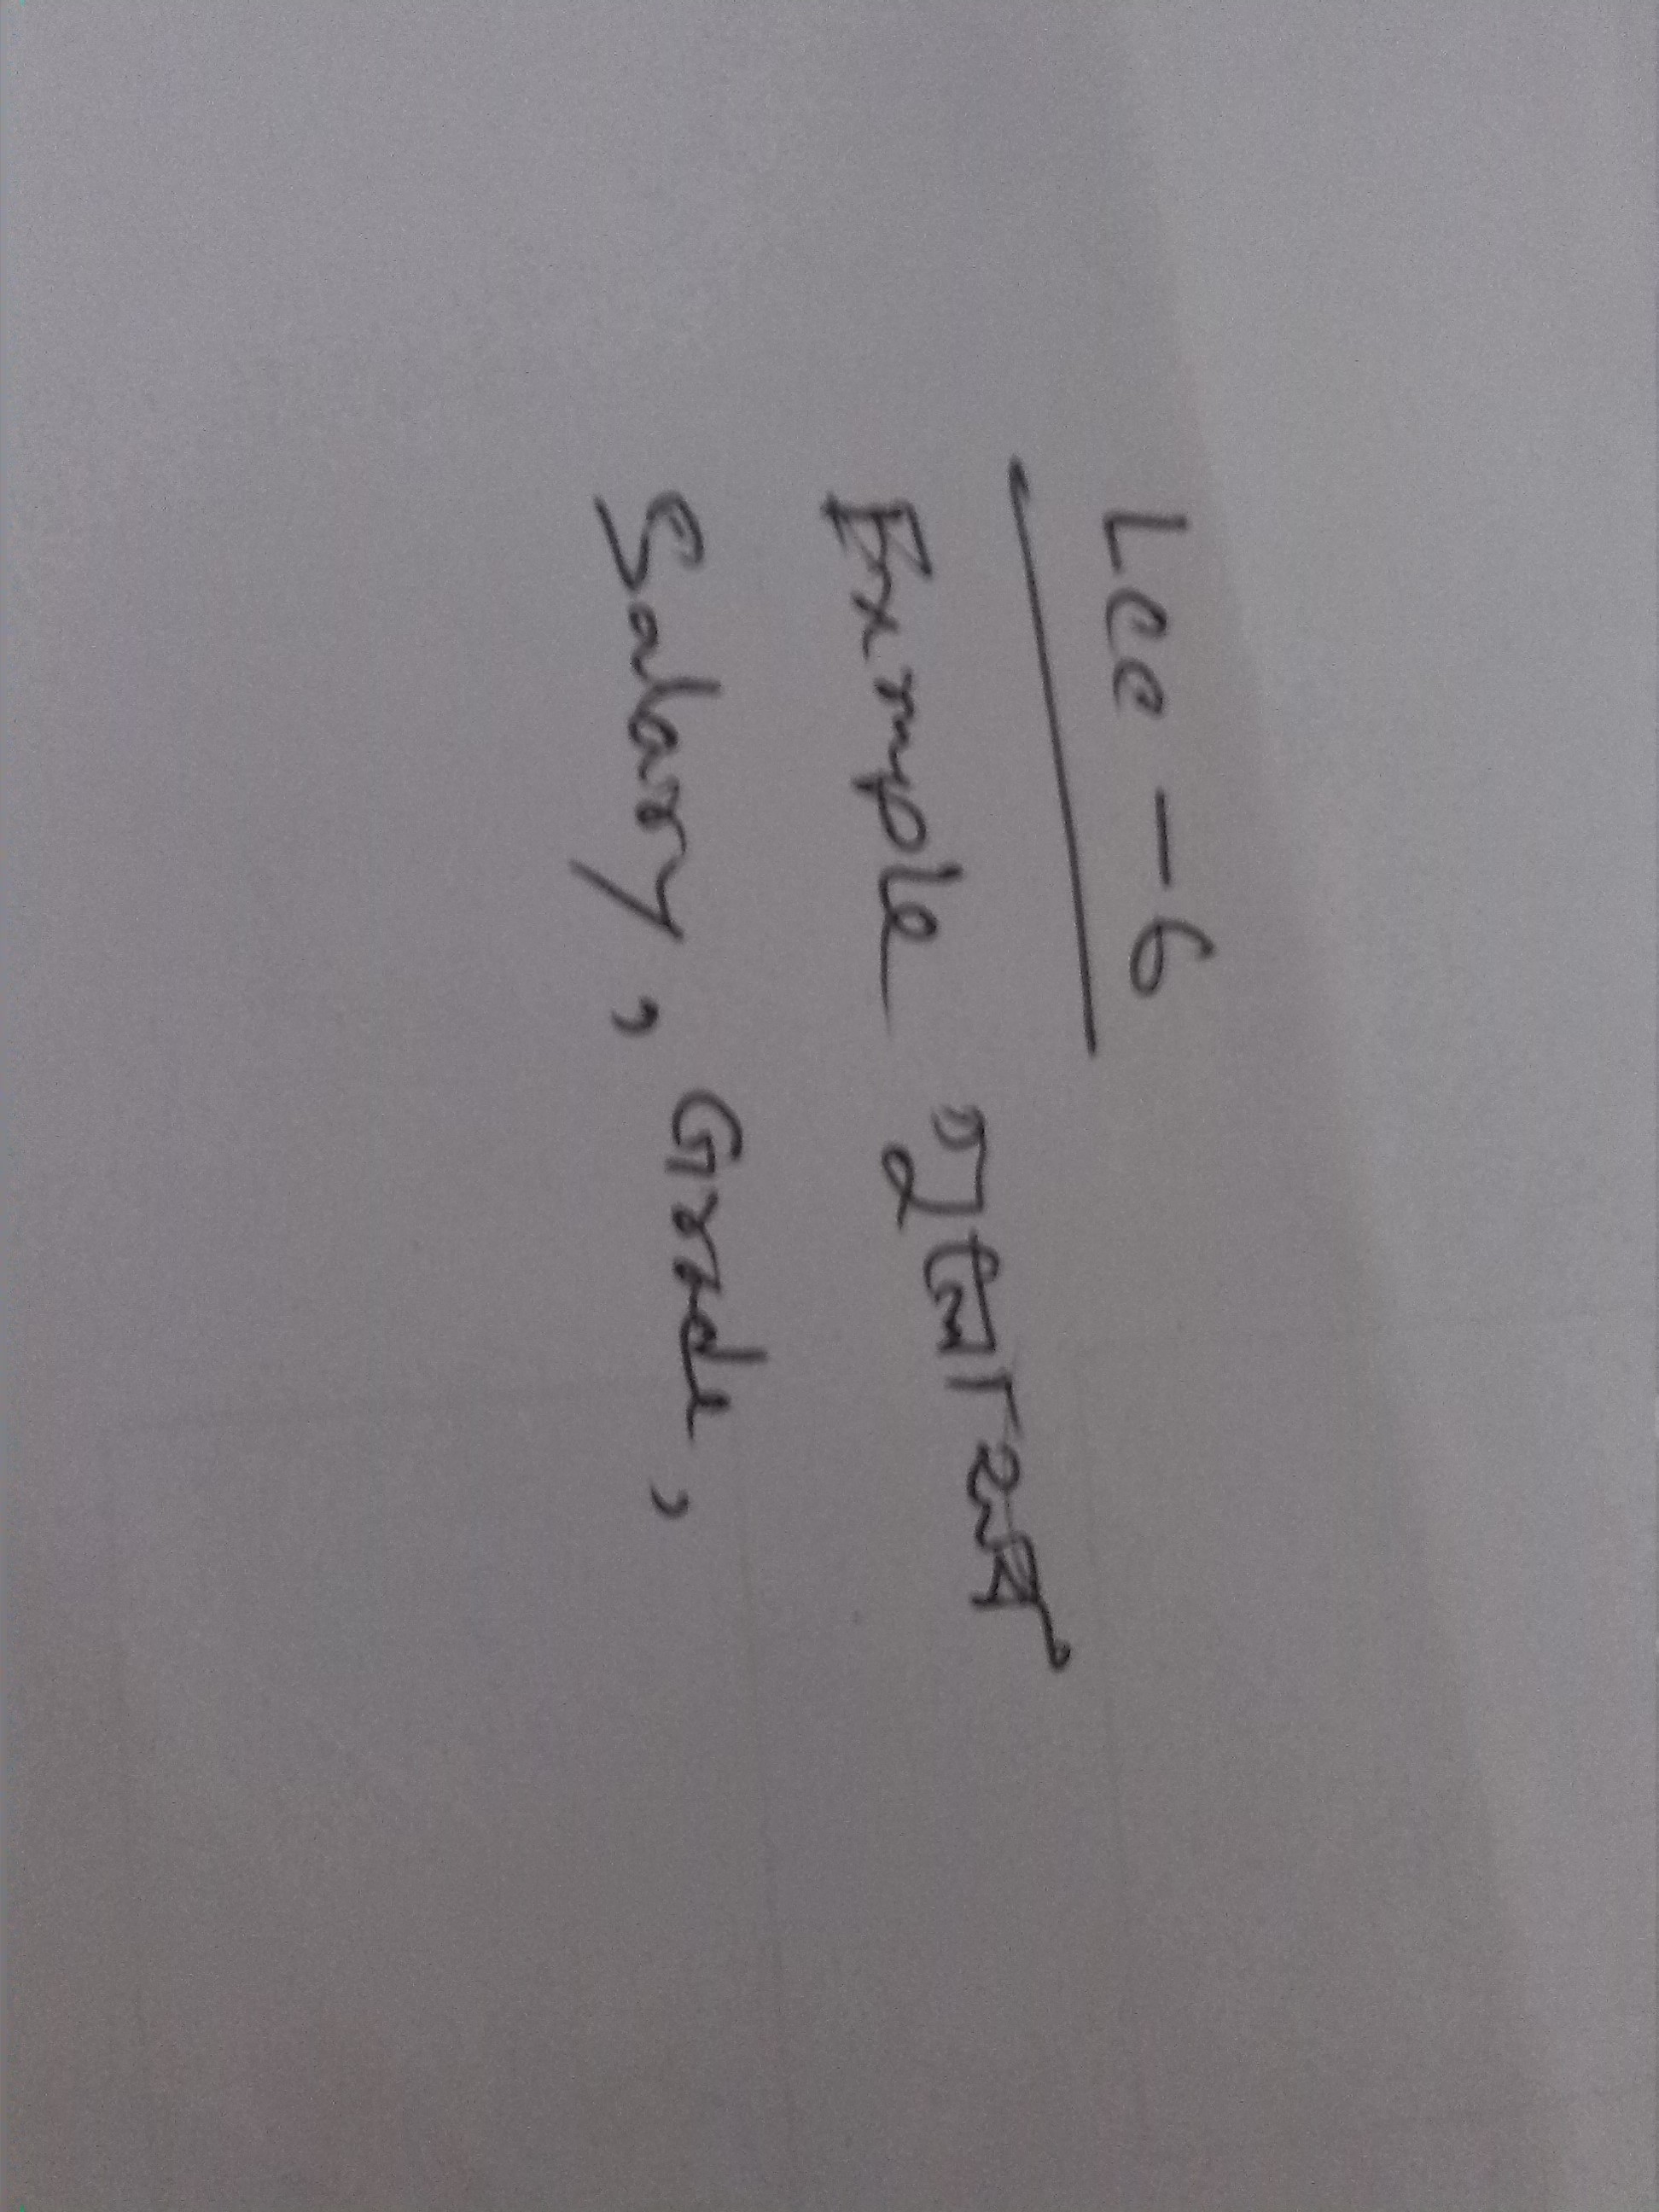 Lec - 6
Exmple গুলো
Salary, Grade,